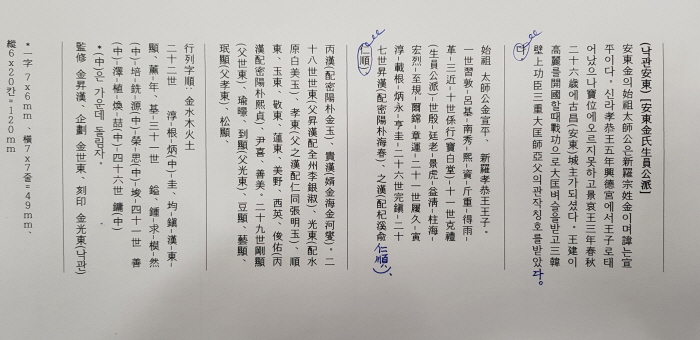 (낙관安東) [安東金氏生員公派]
安東金의始祖太師公은新羅宗姓金이며諱는宣
平이다. 신라孝恭王五年興德宮에서王子로태
어났으나寶位에오르지못하고景哀王三年春秋
二十六歲에古昌(安東)城主가되셨다. 王建이
高麗를開國할때戰功으로大匡벼슬을받고三韓
壁上功臣三重大匡師亞父의관작칭호를받았다.
다.
始祖 太師公金宣平、 新羅孝恭王王子.
一世習敦-呂基-南秀-熙-資-斤重-得雨-
革-三近-十世係行(寶白堂)-十一世克禮
(生員公派)-世殷-廷老-景虎-益淸-柱海-
宏烈-至規-爾鎔-章運-二十一世履久-寅
淳-載根-炳永-亨圭-二十六世完鎭-二十
七世昇漢(配密陽朴海春)、之漢(配杞溪兪仁順)、
仁順)
丙漢(配密陽朴金玉)、貴漢(婿金海金河燮)。二
十八世世東(父昇漢配全州李銀淑)、光東(配水
原白美玉)、孝東(父之漢配仁同張明玉)、順
東、玉東、敬東、蓮東、美野、西英、俊佑(丙
漢配密陽朴熙貞)、尹喜、善美。二十九世剛顯
(父世東)、瑜曔、到顯(父光東)、豆顯、藝顯、
珉顯(父孝東)、松顯、
行列字順: 金水木火土
二十二世 淳-根-炳(中)-圭、均-鎭-漢-東-
顯、薰-年、基-三十一世 鎰、鍾-求-模-然
(中)-培-銑-源(中)-榮-思(中)-埈-四十一世 善
(中)-澤-植-煥-喆(中)-四十六世 鏞(中)
*(中)은 가운데 돌림자。
監修 金昇漢、企劃 金世東、刻印 金光東(낙관)
*一字 7x6mm、橫7x7줄=49mm、
縱6x20칸=120mm